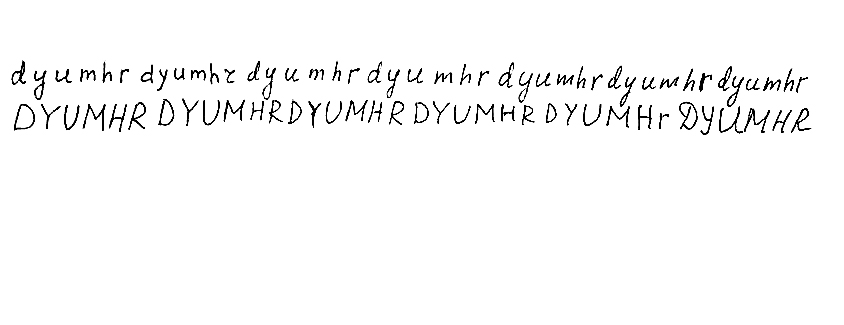 dyumhr dyumhr dyumhr dyumhr dyumhr dyumhr dyumhr
DYUMHR DYUMHR DYUMHR DYUMHR DYUMHr DYUMHR